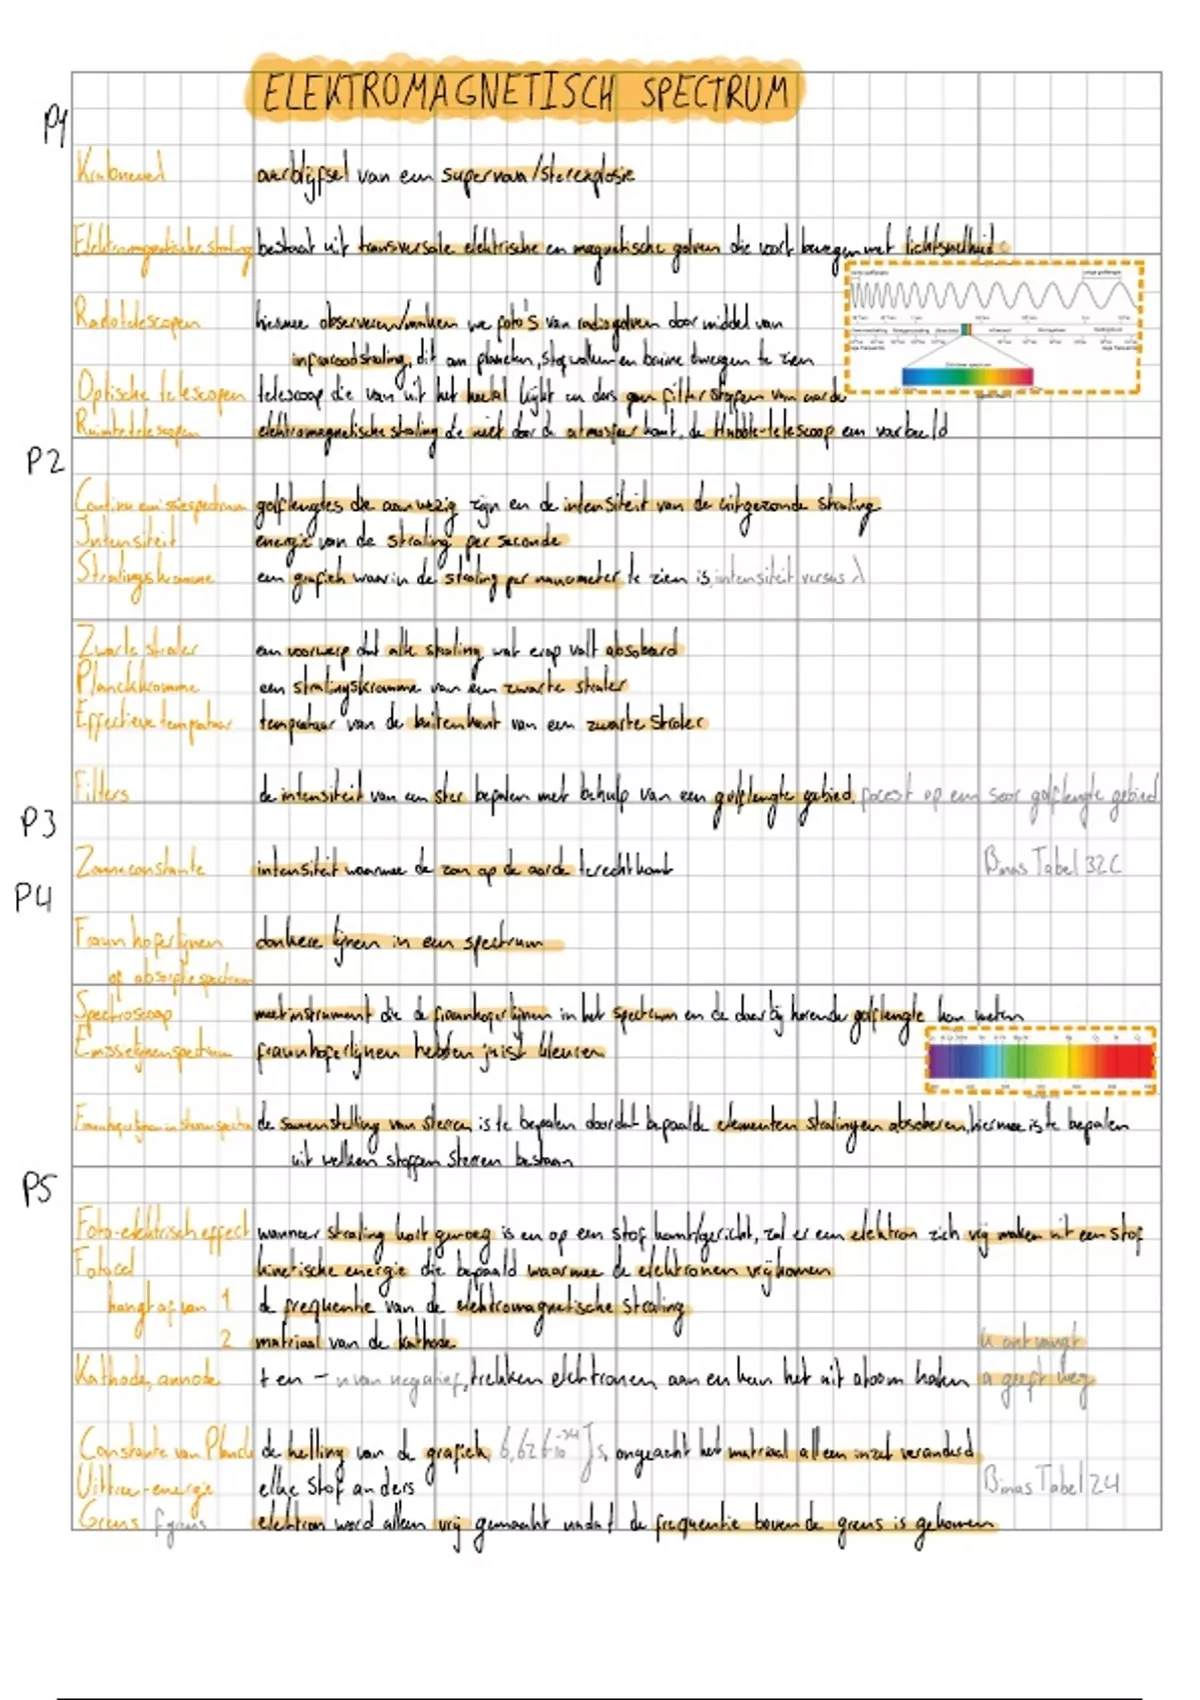 ELEKTROMAGNETISCH SPECTRUM
P1
Krabnevel overblijfsel van een supernova/sterexplosie
Elektromagnetische straling bestaat uit transversale elektrische en magnetische golven die voort bewegen met lichtsnelheid c
Radiotelescopen hiermee observeren/maken we foto's van radiogolven door middel van
infraroodstraling, dit om planeten, stofwolken en bruine dwergen te zien
Optische telescopen telescoop die van uit het heelal kijkt en dus geen filter stoffen van aarde
Ruimtetelescopen elektromagnetische straling die niet door de atmosfeer komt, de Hubble-telescoop een voorbeeld
P2
Continu emissiespectrum golflengtes die aanwezig zijn en de intensiteit van de uitgezonde straling
Intensiteit energie van de straling per seconde
Stralingskromme een grafiek waarin de straling per nanometer te zien is, intensiteit versus λ
Zwarte straler een voorwerp dat alle straling wat erop valt absobeerd
Planckkromme een stralingskromme van een zwarte straler
Effectieve tempratuur tempratuur van de buitenkant van een zwarte straler
Filters de intensiteit van een ster bepalen met behulp van een golflengte gebied, focest op een soor golflengte gebied
P3
Zonneconstante intensiteit waarmee de zon op de aarde terecht komt Binas Tabel 32C
P4
Fraunhoferlijnen donkere lijnen in een spectrum
of absorptiespectrum
Spectroscoop meetinstrument die de fraunhoferlijnen in het spectrum en de daarbij horende golflengte kan meten
Emissielijnenspectrum fraunhoferlijnen hebben juist kleuren
Fraunhoferlijnen in sterrenspectra de samenstelling van sterren is te bepalen doordat bepaalde elementen stralingen absoberen, hiermee is te bepalen
uit welken stoffen sterren bestaan
P5
Foto-elektrisch effect wanneer straling kort genoeg is en op een stof komt/gericht, zal er een elektron zich vrij maken uit een stof
Fotocel kinetische energie die bepaald waarmee de elektronen vrijkomen
hangt af van 1 de frequentie van de elektromagnetische straling
2 matriaal van de kathode
k ontvangt
Kathode, annode + en - n van negatief, trekken elektronen aan en kan het uit atoom halen a geeft weg
Constante van Planck de helling van de grafiek, 6,626·10⁻³⁴ Js, ongeacht het matriaal alleen inzet veranderd
Uittree-energie elke stof anders Binas Tabel 24
Grens f grens elektron word alleen vrij gemaakt nadat de frequentie boven de grens is gekomen